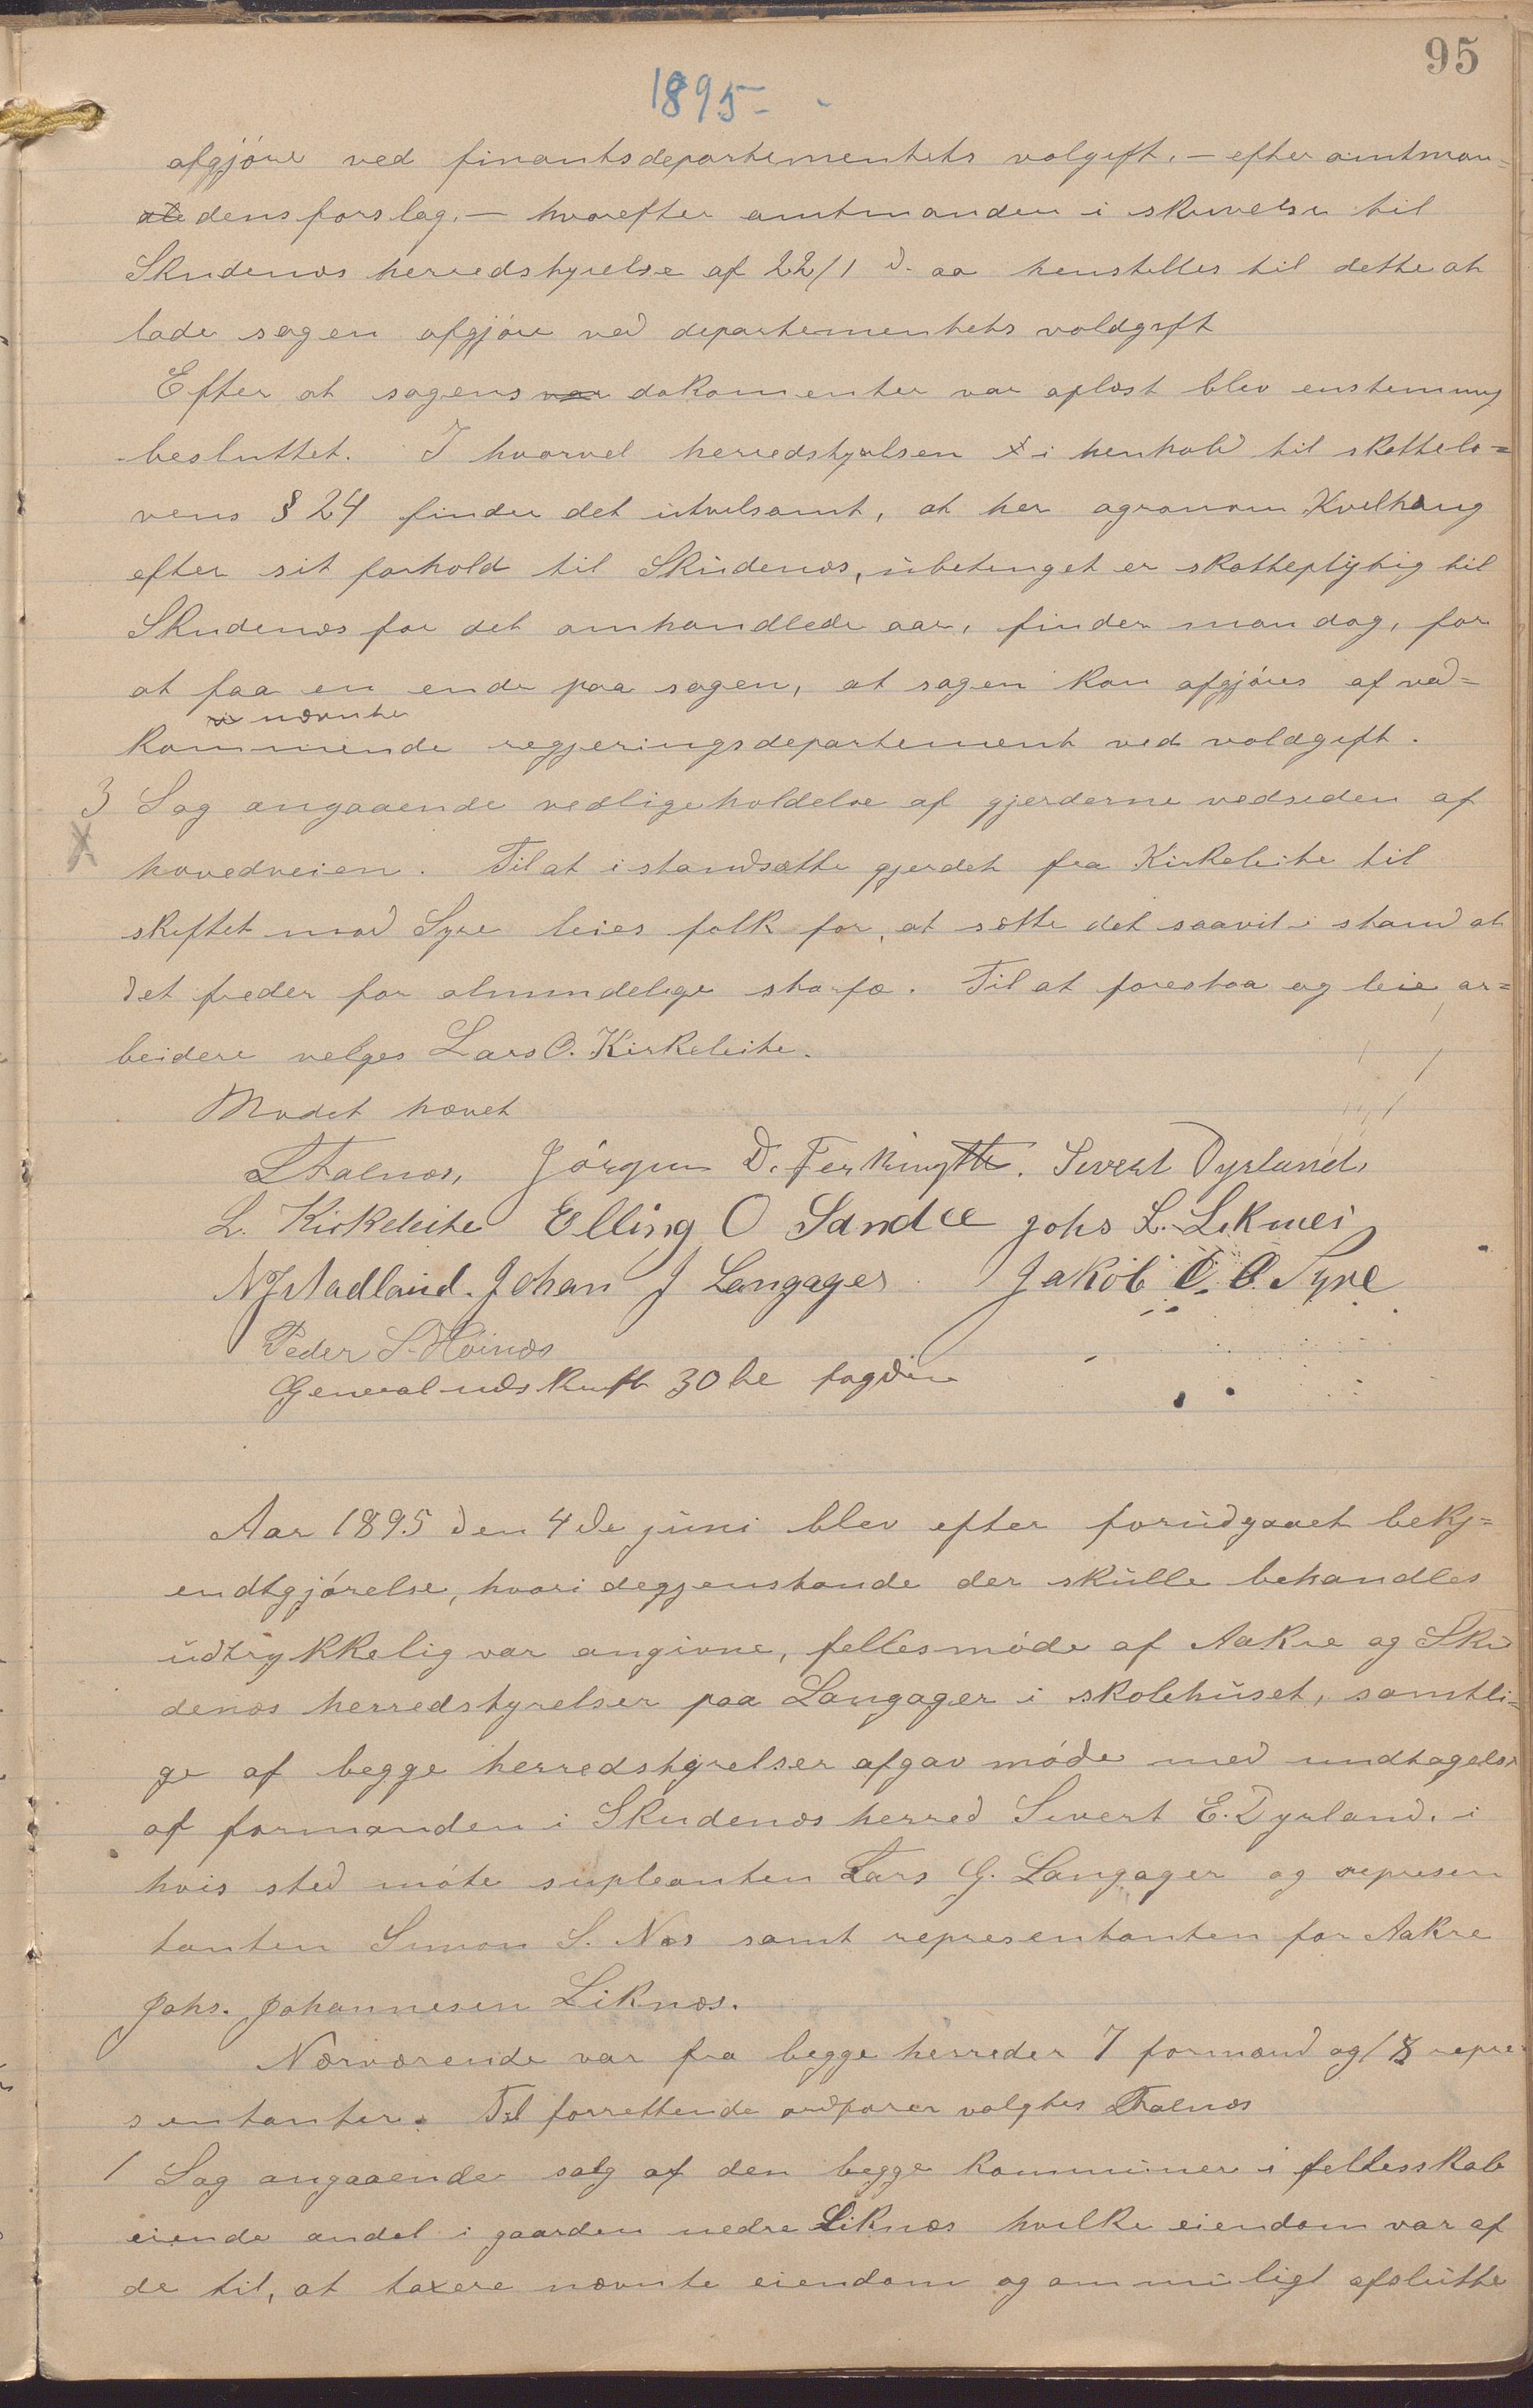 95
1895 -
afgjøre ved finantsdepartementets volgift, – efter amtman-
dens forslag, – hvorefter amtmanden i skrivelse til
Skudenæs herredstyrelse af 22/1 d. aa henstilles til dette at
lade sagen afgjøre ved departementets voldgift
Efter at sagens dokomenter var oplæst blev enstemmig
besluttet. I hvorvel herredstyrelsen i henhold til skattelo-
vens § 24 finder det utvelsomt, at her agronom Kvelhaug
efter sit forhold til Skudenæs, ubetinget er skattepligtig til
Skudenæs for det omhandlede aar, finder man dog, for
at faa en ende paa sagen, at sagen kan afgjøres af ved-
nævnte
kommende regjeringsdepartement ved voldgift.
3 Sag angaaende vedligeholdelse af gjerderne vedsiden af
hovedveien. Til at istandsætte gjerdet fra Kirkeleite til
skiftet mod Syre leies folk for at sætte det saavit i stand at
det freder for almindelige storfæ. Til at forestaa og leie ar-
beidere velges Lars O. Kirkeleite.
Mødet hævet
Falnæs, Jørgen D. Ferkingst. Sivert Dyrland,
L. Kirkeleite Elling O Sandve Johs L. Liknes
N J Aadland. Johan J Langager Jakob C. O. Syre
Peder S. Høinæs
General udskrift 30te fogden
Aar 1895 den 4de juni blev efter forudgaaet bekj-
endtgjørelse, hvori degjenstande der skulle behandles
udtrykkelig var angivne, fellesmøde af Aakre og Sku
denæs herredstyrelser paa Langager i skolehuset, samtli-
ge af begge herredstyrelser afgav møde med undtagelse
af formanden i Skudenæs herred Sivert E. Dyrland, i
hvis sted møte supleanten Lars G. Langager og represen
tanten Simon S. Næs samt representanten for Aakre
Johs. Johannesen Liknæs.
Nærværende var fra begge herreder 7 formænd og 18 repre-
sentanter. Til forrettende ordfører valgtes Falnæs
1 Sag angaaende salg af den begge kommuner i fellesskab
eiende andel i gaarden nedre Liknæs hvilke eiendom var af
de til, at taxere nævnte eiendom og om muligt afslutte